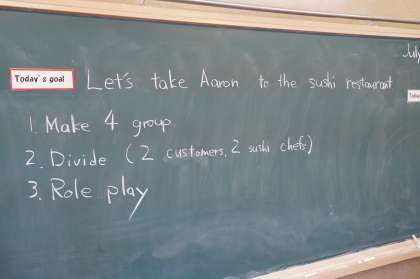 July
Today's goal Let's take Aaron to the sushi restaurant
1. Make 4 group
2. Divide (2 customers, 2 sushi chefs)
3. Role play